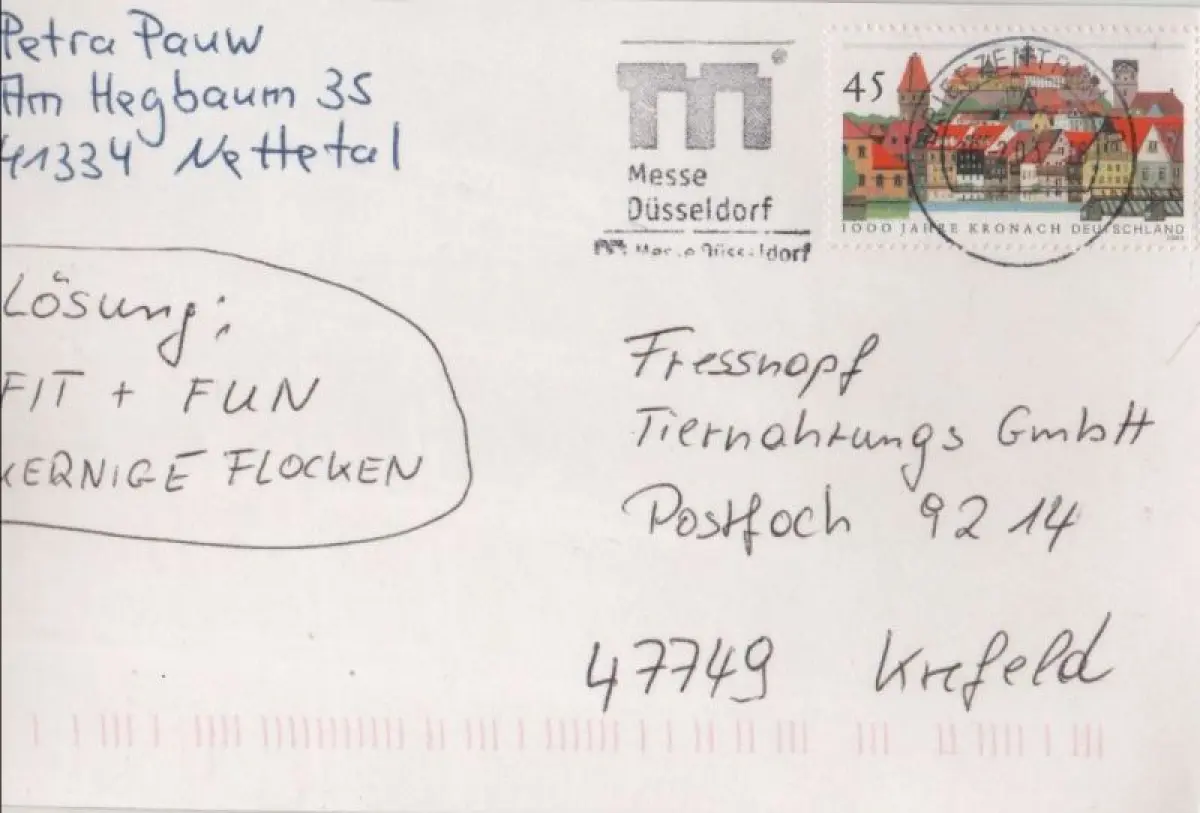 Petra Pauw
Am Hegbaum 35
41334 Nettetal
Messe
Düsseldorf
Messe Düsseldorf
45
BRIEFZENTRUM
1000 JAHRE KRONACH DEUTSCHLAND
Lösung:
FIT + FUN
KERNIGE FLOCKEN
Fressnapf
Tiernahrungs GmbH
Postfach 92 14
47749 Krefeld